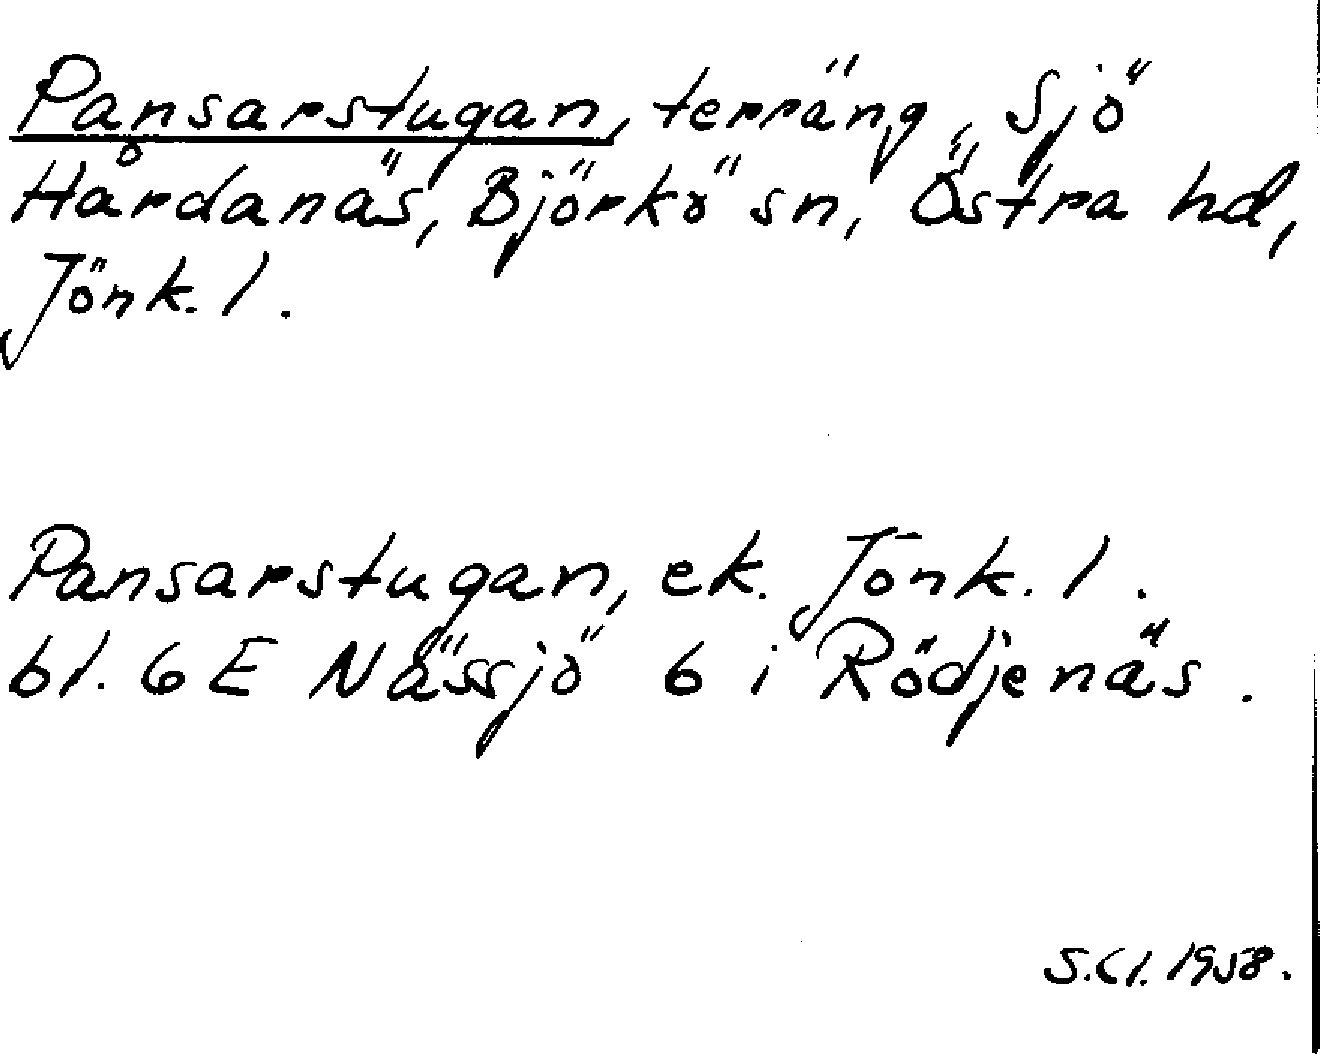 Pansarstugan, terräng, Sjö
Hårdanäs, Björkö sn, Östra hd,
Jönk. l.
Pansarstugan, ek. Jönk. l.
bl. 6 E Nässjö 6 i Rödjenäs.
S.Cl. 1958.